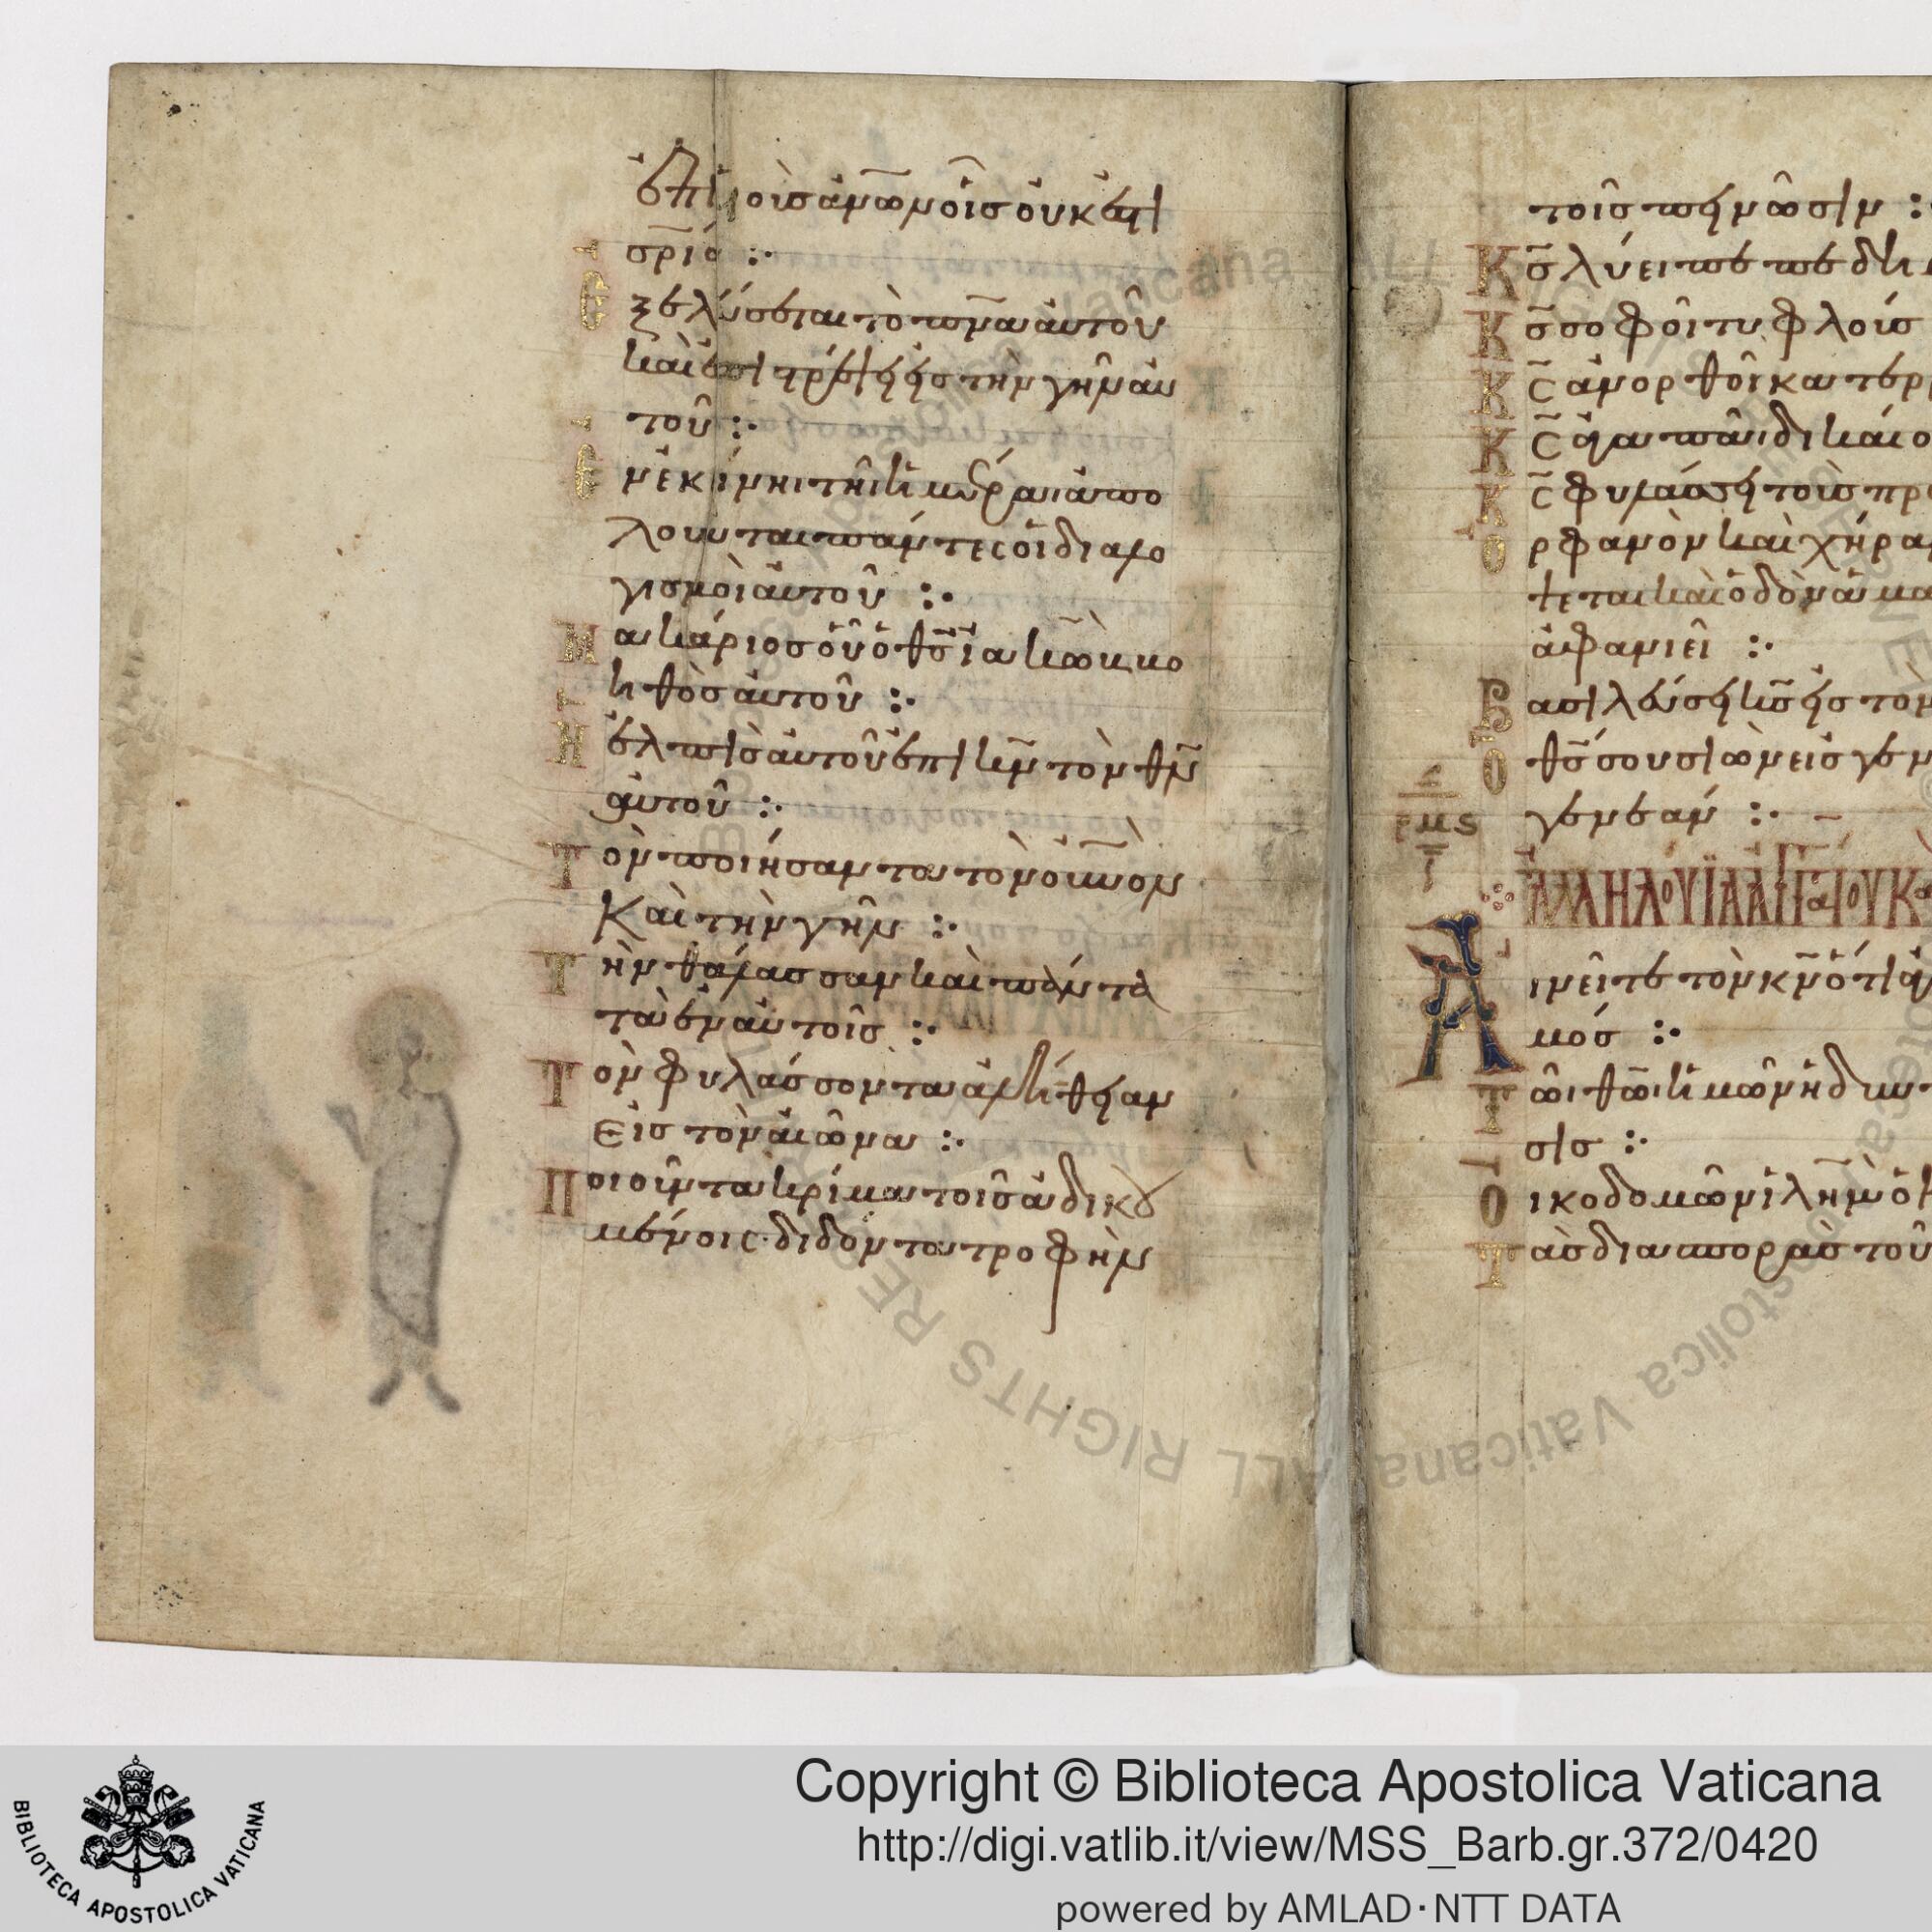 ἐφ οἷς ἀνων οἷς οὐκ ἔστι
σρία :·
Ἐξελεύσεται τὸ πνα αὐτοῦ
καὶ ἐπιστρέψει εἰς τὴν γῆν αὐ
τοῦ :·
Ἐν ἐκείνηι τῆι ἡμέραι ἀπο
λοῦνται πάντες οἱ διαλο
γισμοὶ αὐτοῦ :·
Μακάριος οὗ ὁ θς ἰακὼβ
βοηθὸς αὐτοῦ :·
Ἡ ἐλπὶς αὐτοῦ ἐπὶ κν τὸν θν
αὐτοῦ :·
Τὸν ποιήσαντα τὸν οὐνον
Καὶ τὴν γῆν :·
Τὴν θάλασσαν καὶ πάντα
τὰ ἐν αὐτοῖς :·
Τὸν φυλάσσοντα ἀλήθειαν
εἰς τὸν αἰῶνα :·
Ποιοῦντα κρίμα τοῖς ἀδικου
μένοις· διδόντα τροφὴν
τοῖς πεινῶσιν :·
Κς λύει πεπεδη
Κς σοφοῖ τυφλούς
Κς ἀνορθοῖ κατερρ
Κς ἀγαπᾶι δικαίο
Κς φυλάσσει τοὺς πρ
Ορφανὸν καὶ χήραν
ψεται καὶ ὁδὸν ἁμα
ἀφανιεῖ :·
Βασιλεύσει κς εἰς τὸν
Ο θς σου σιὼν εἰς γεν
γενεάν :·
ρμς
ΑΛΛΗΛΟΥΪΑ ΑΓΓΑΙΟΥ Κα
Αἰνεῖτε τὸν κν ὅτι ἀ
μός :·
Τῶι θῶι ἡμῶν ἡδυν
σις :·
Οἰκοδομῶν ἰλημ ὁ κ
Τὰς διασπορὰς τοῦ
Copyright © Biblioteca Apostolica Vaticana
http://digi.vatlib.it/view/MSS_Barb.gr.372/0420
powered by AMLAD·NTT DATA
BIBLIOTECA APOSTOLICA VATICANA